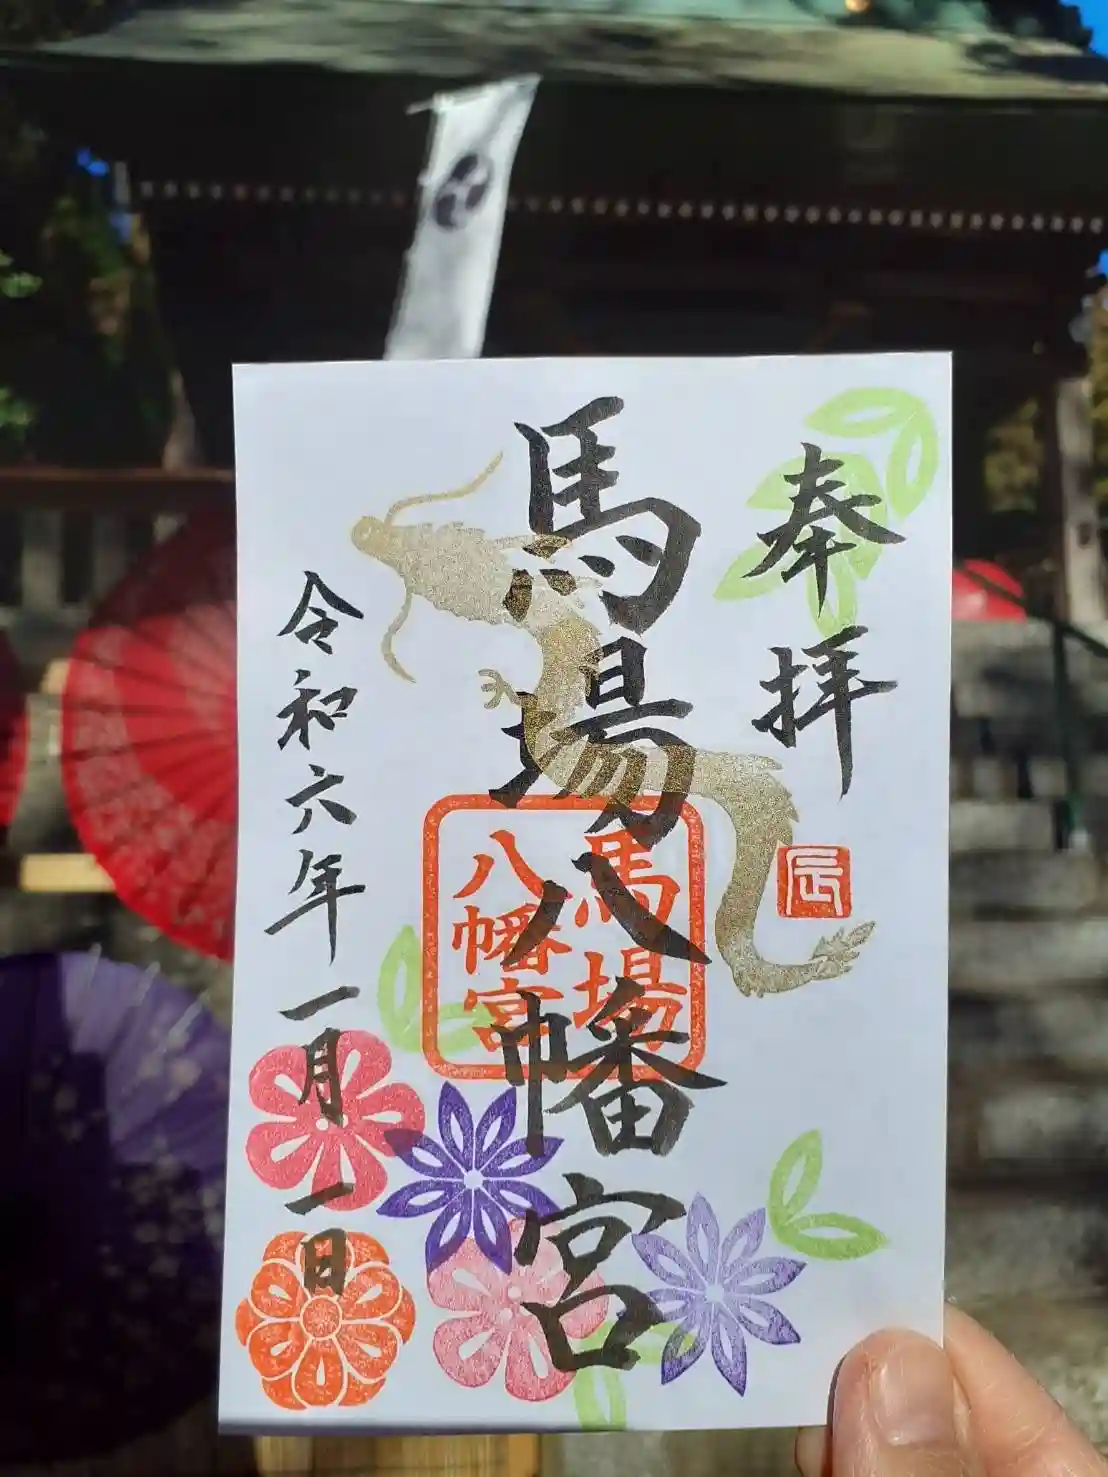 奉拝
辰
馬場八幡宮
馬場
八幡宮
令和六年一月一日